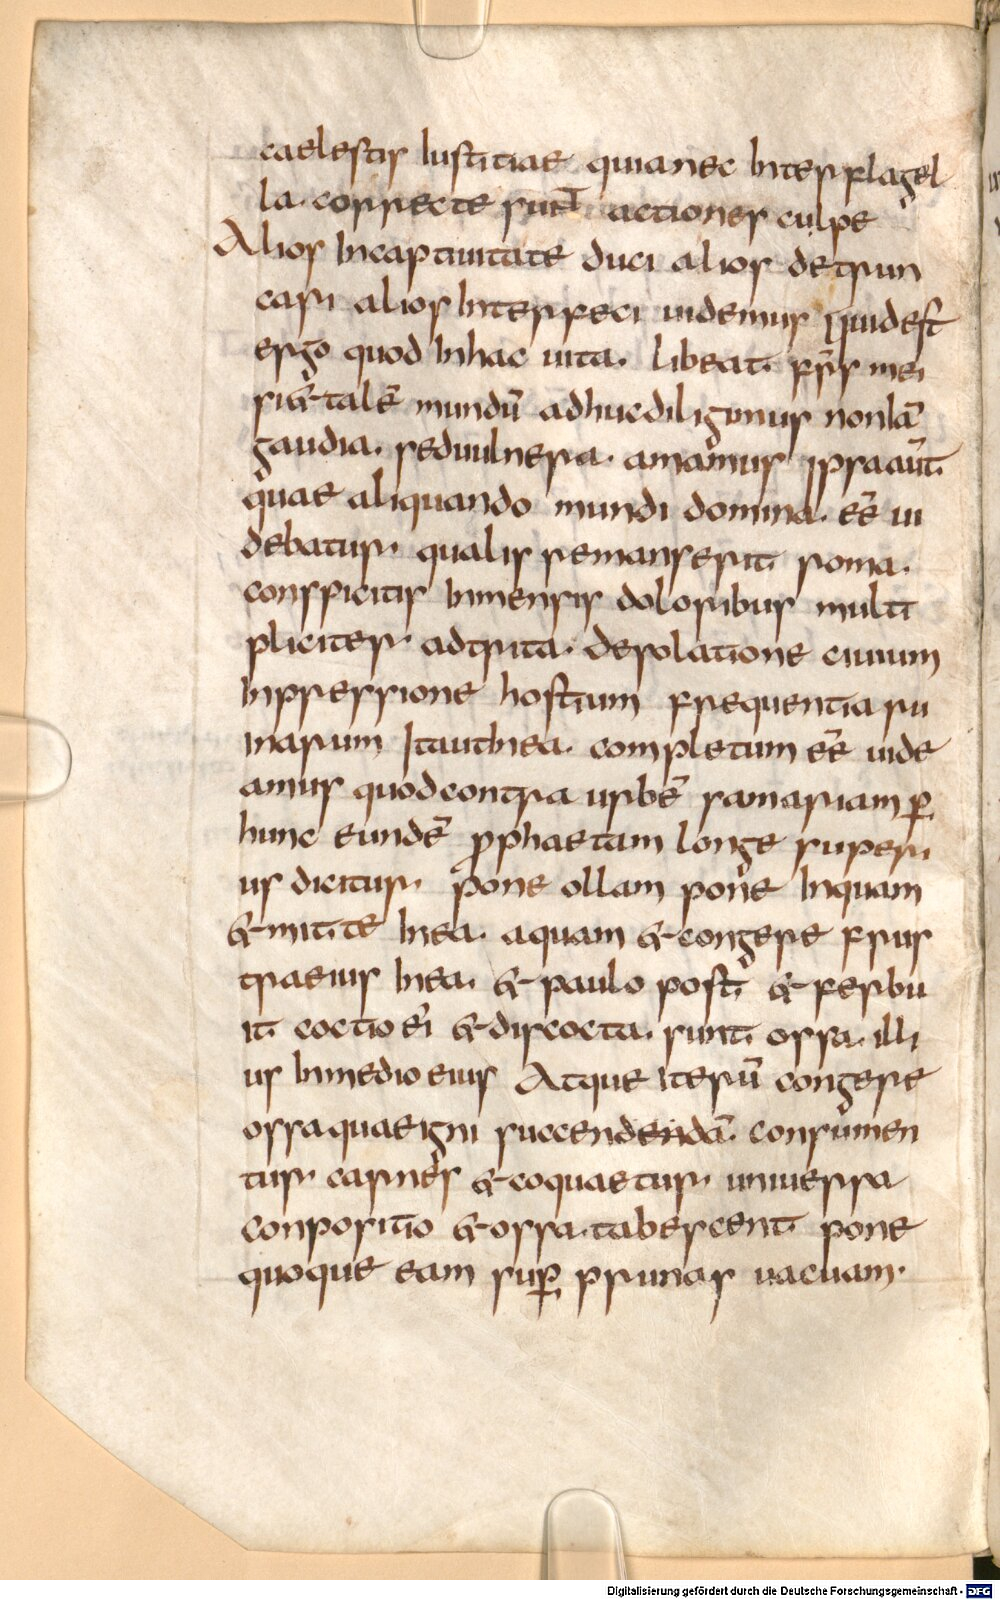 caelestis iustitiae quia nec inter flagel
la. correcte sunt actiones culpe
Alios incaptiuitate duci alios detrun
cari alios interfeci uidemus Quid est
ergo quod inhac uita. libeat. frs̄ mei
si & talē mundū adhuc diligimus non iā
gaudia. sed uulnera. amamus ipsa aūt.
quae aliquando mundi domina. eē ui
debatur. qualis remanserit roma.
conspicitis inmensis doloribus multi
pliciter adtrita. desolatione ciuium
inpressione hostium frequentia ru
inarum Ita ut inea. completum eē uide
amus quod contra urbē samariam p̱
hunc eundē prophaetam longe superi
us dicitur. pone ollam pone inquam
& mitte inea. aquam & congere frus
tra eius inea. & paulo post & ferbu
it coctio ei & discocta. sunt ossa. illi
us inmedio eius Atque iterū congere
ossa quae igni succendendā. consumen
tur carnes & coquaetur. uniuersa
conpositio & ossa. tabescent pone
quoque eam sup̱ prunas uacuam.
Digitalisierung gefördert durch die Deutsche Forschungsgemeinschaft - DFG